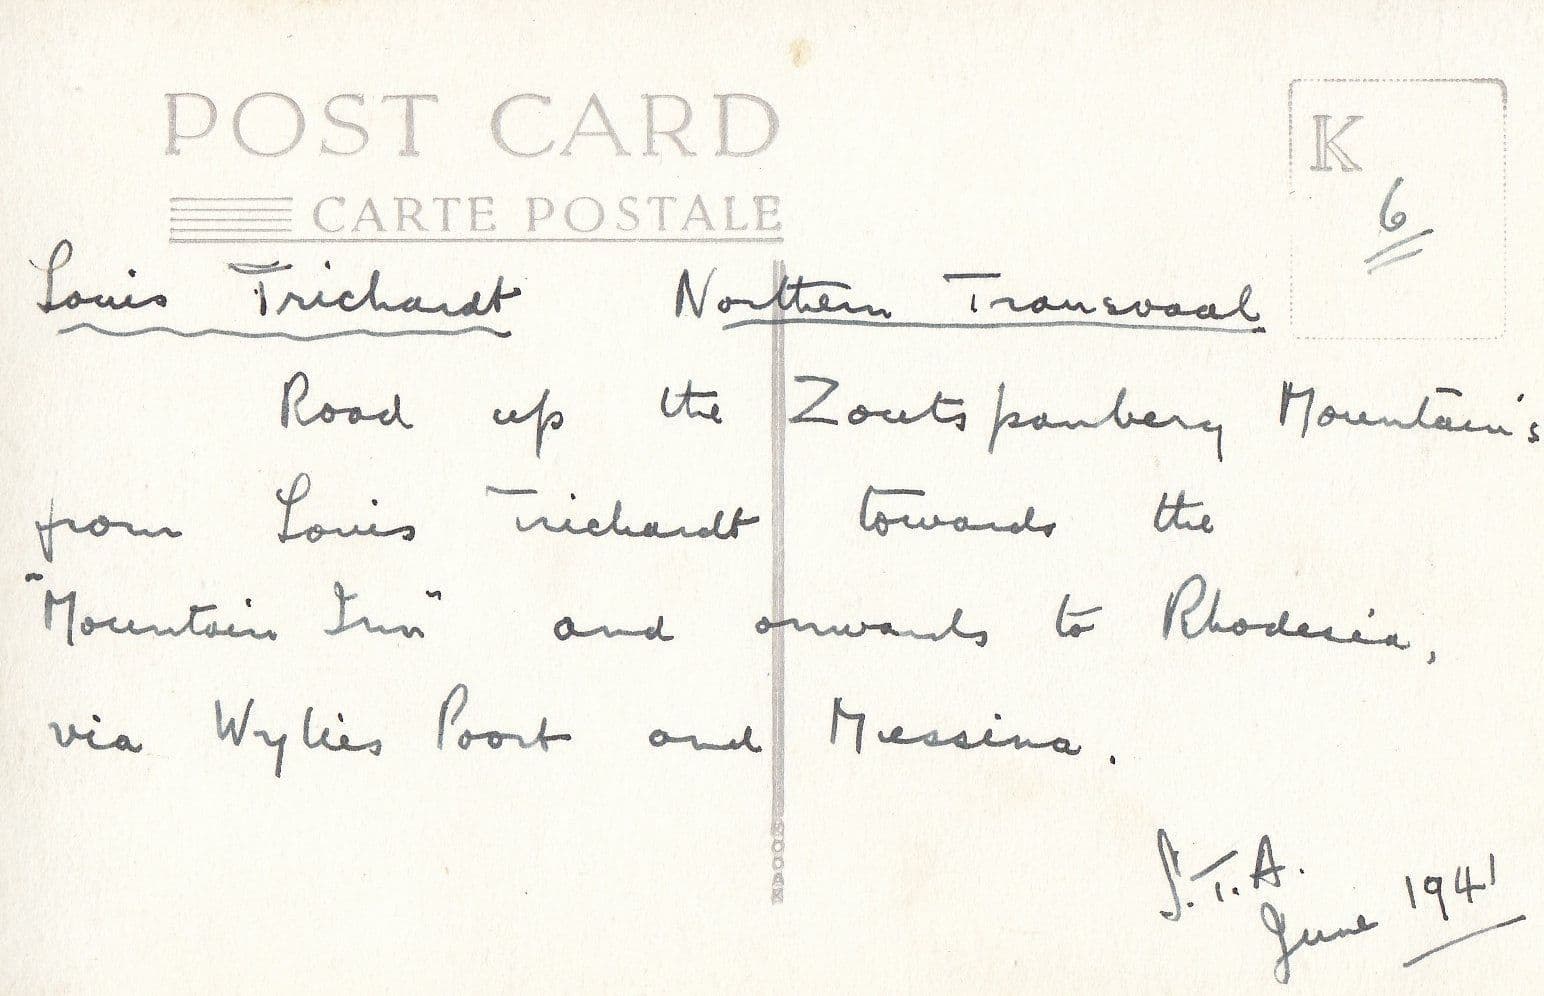 POST CARD
CARTE POSTALE
K
6
Louis Trichardt Northern Transvaal
Road up the Zoutspanberg Mountain's
from Louis Trichardt towards the
"Mountain Inn" and onwards to Rhodesia,
via Wylies Poort and Messina.
KODAK
June 1941